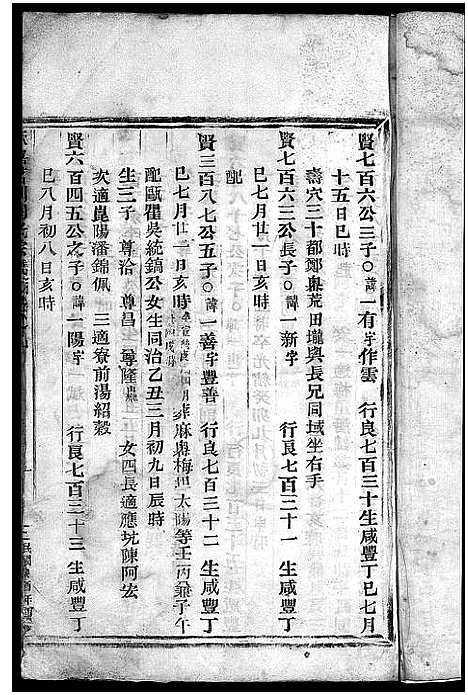 賢七百六公三子○諱一有字作雲 行良七百三十生咸豐丁巳七月
十五日巳時
壽穴三十都鄭奧荒田壠與長兄同域坐右手
賢七百六三公長子○諱一新字 行良七百三十一 生咸豐丁
巳七月廿一日亥時
配
賢三百八七公五子○諱一善字豐善 行良七百三十二 生咸豐丁
巳七月廿二日亥時 葬麻奧梅 太陽等壬丙兼子午
配歐瞿吳統鎬公女生同治乙丑三月初九日辰時
生三子 尊洽 尊昌 尊隆 女四長適應坑陳阿宏
次適崑陽潘錦佩 三適寮前湯紹穀
賢六百四五公之子○諱一陽字 行良七百三十三 生咸豐丁
巳八月初八日亥時